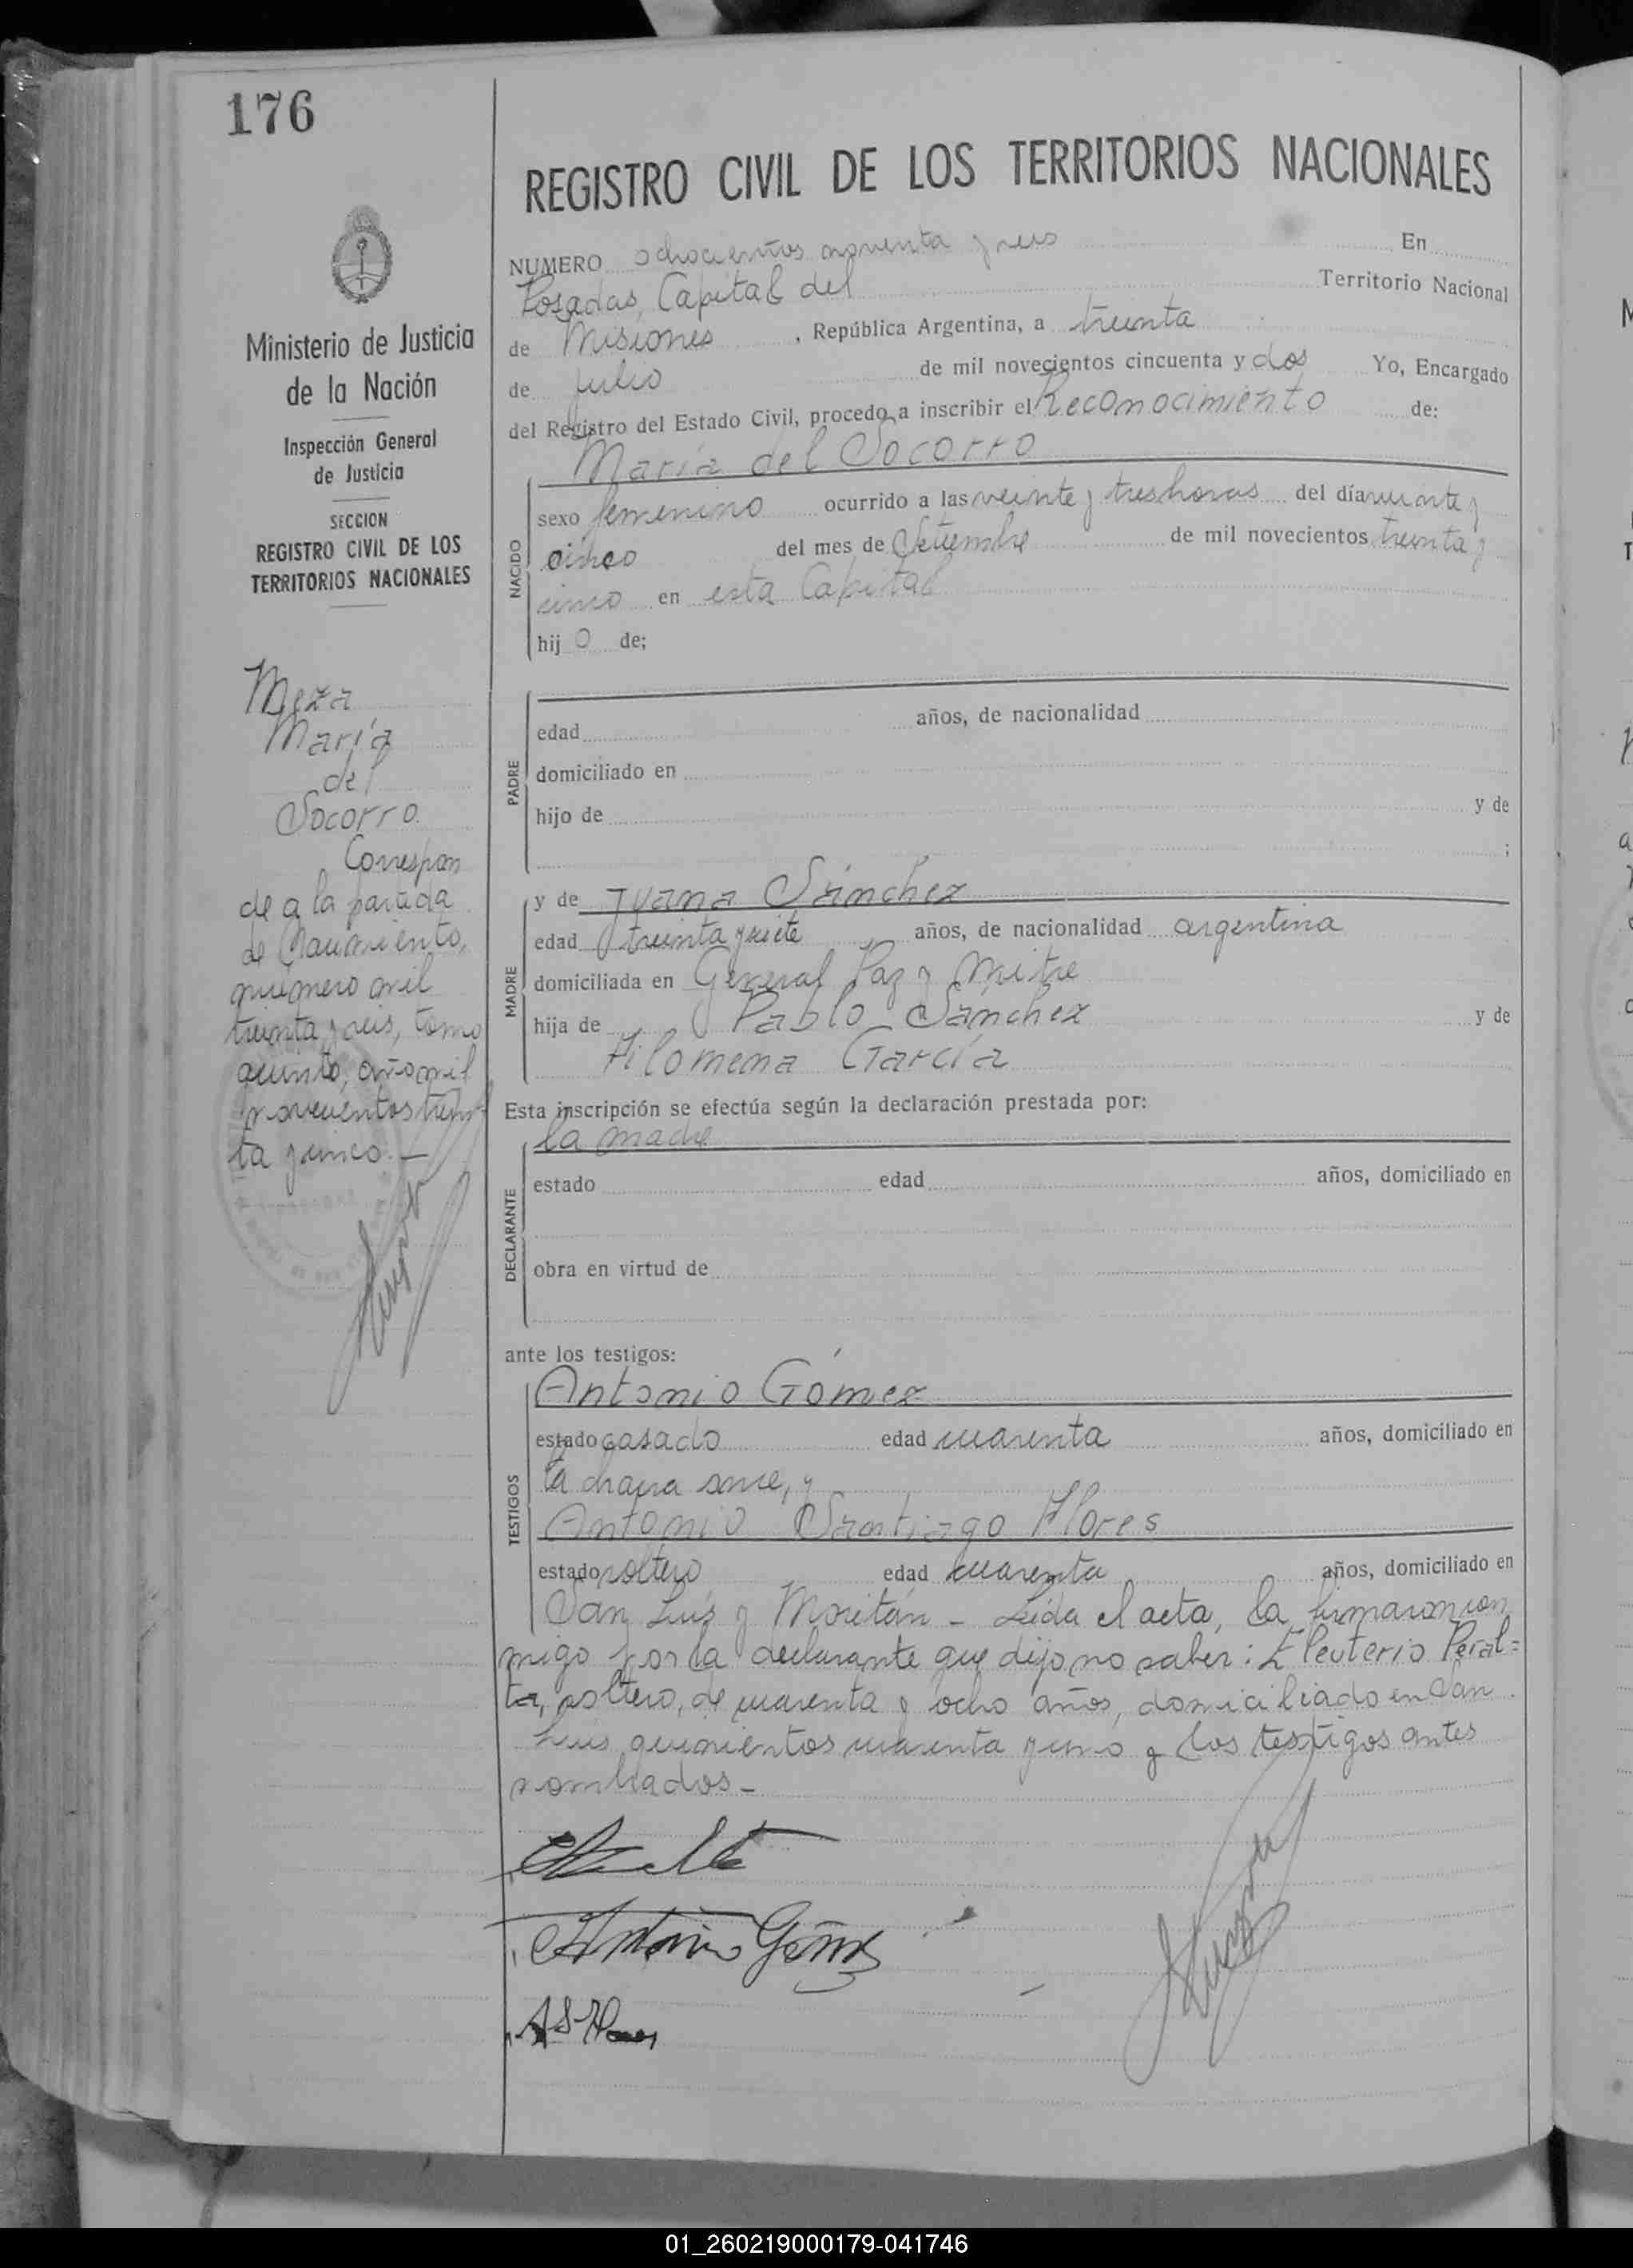 176
REGISTRO CIVIL DE LOS TERRITORIOS NACIONALES
NUMERO ochocientos noventa y seis En
Posadas, Capital del Territorio Nacional
de Misiones, República Argentina, a treinta
de julio de mil novecientos cincuenta y dos Yo, Encargado
del Registro del Estado Civil, procedo a inscribir el Reconocimiento de:
María del Socorro
NACIDO
sexo femenino ocurrido a las veinte y tres horas del día veinte y
cinco del mes de Setiembre de mil novecientos treinta y
cinco en esta Capital
hij o de;
PADRE
edad años, de nacionalidad
domiciliado en
hijo de y de
;
MADRE
y de Juana Sánchez
edad treinta y siete años, de nacionalidad argentina
domiciliada en General Paz y Mitre
hija de Pablo Sánchez y de
Filomena García
Esta inscripción se efectúa según la declaración prestada por:
la madre
DECLARANTE
estado edad años, domiciliado en
obra en virtud de
ante los testigos:
TESTIGOS
Antonio Gómez
estado casado edad cuarenta años, domiciliado en
la chacra once, y
Antonio Santiago Flores
estado soltero edad cuarenta años, domiciliado en
San Luis y Moritán - Leída el acta, la firmaron con
migo por la declarante que dijo no saber: Eleuterio Peral=
ta, soltero, de cuarenta y ocho años, domiciliado en San
Luis quinientos cuarenta y uno y los testigos antes
nombrados -
Antonio Gómez
A S Flores
Ministerio de Justicia
de la Nación
Inspección General
de Justicia
SECCION
REGISTRO CIVIL DE LOS
TERRITORIOS NACIONALES
Meza
María
del
Socorro.
Correspon
de a la partida
de Nacimiento,
número mil
treinta y seis, tomo
quinto, año mil
novecientos trein
ta y cinco. -
01_260219000179-041746